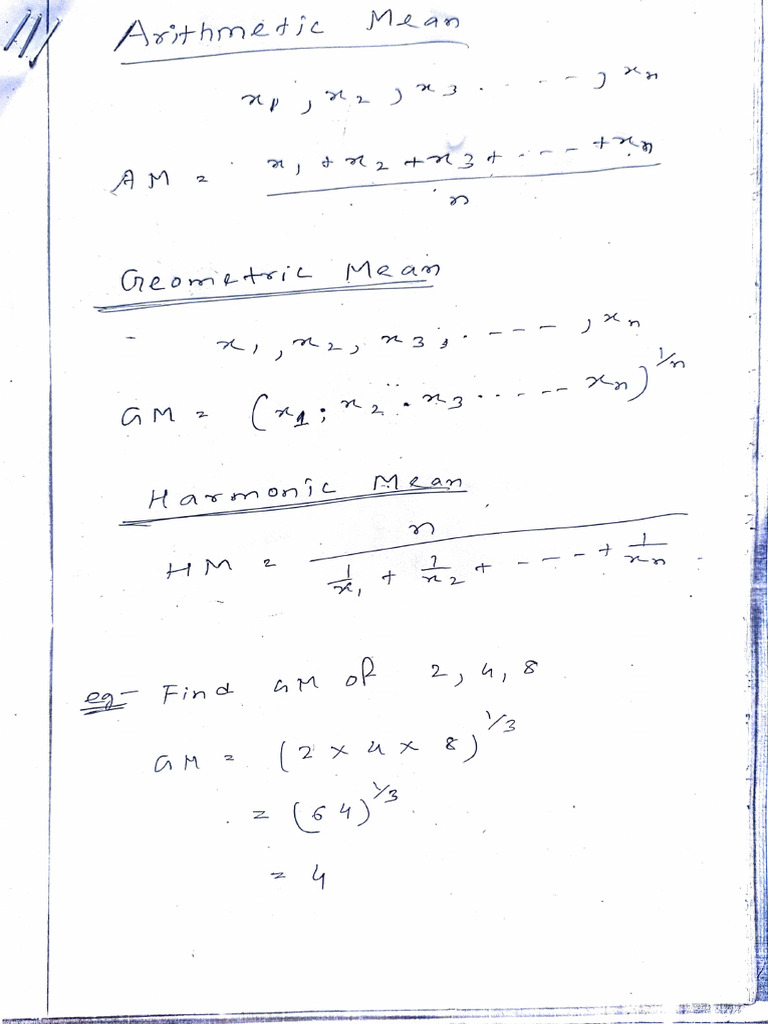 Arithmetic Mean
x₁, x₂, x₃ . . - - - -, xₙ
AM = (x₁ + x₂ + x₃ + - - - - + xₙ) / n
Geometric Mean
x₁, x₂, x₃, - - - -, xₙ
GM = (x₁ · x₂ · x₃ . . . - - - xₙ)^1/n
Harmonic Mean
HM = n / (1/x₁ + 1/x₂ + - - - - + 1/xₙ)
eg- Find GM of 2, 4, 8
GM = (2 × 4 × 8)^1/3
= (64)^1/3
= 4